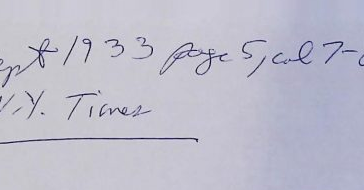 Sept 1933 page 5, col 7-
N.Y. Times